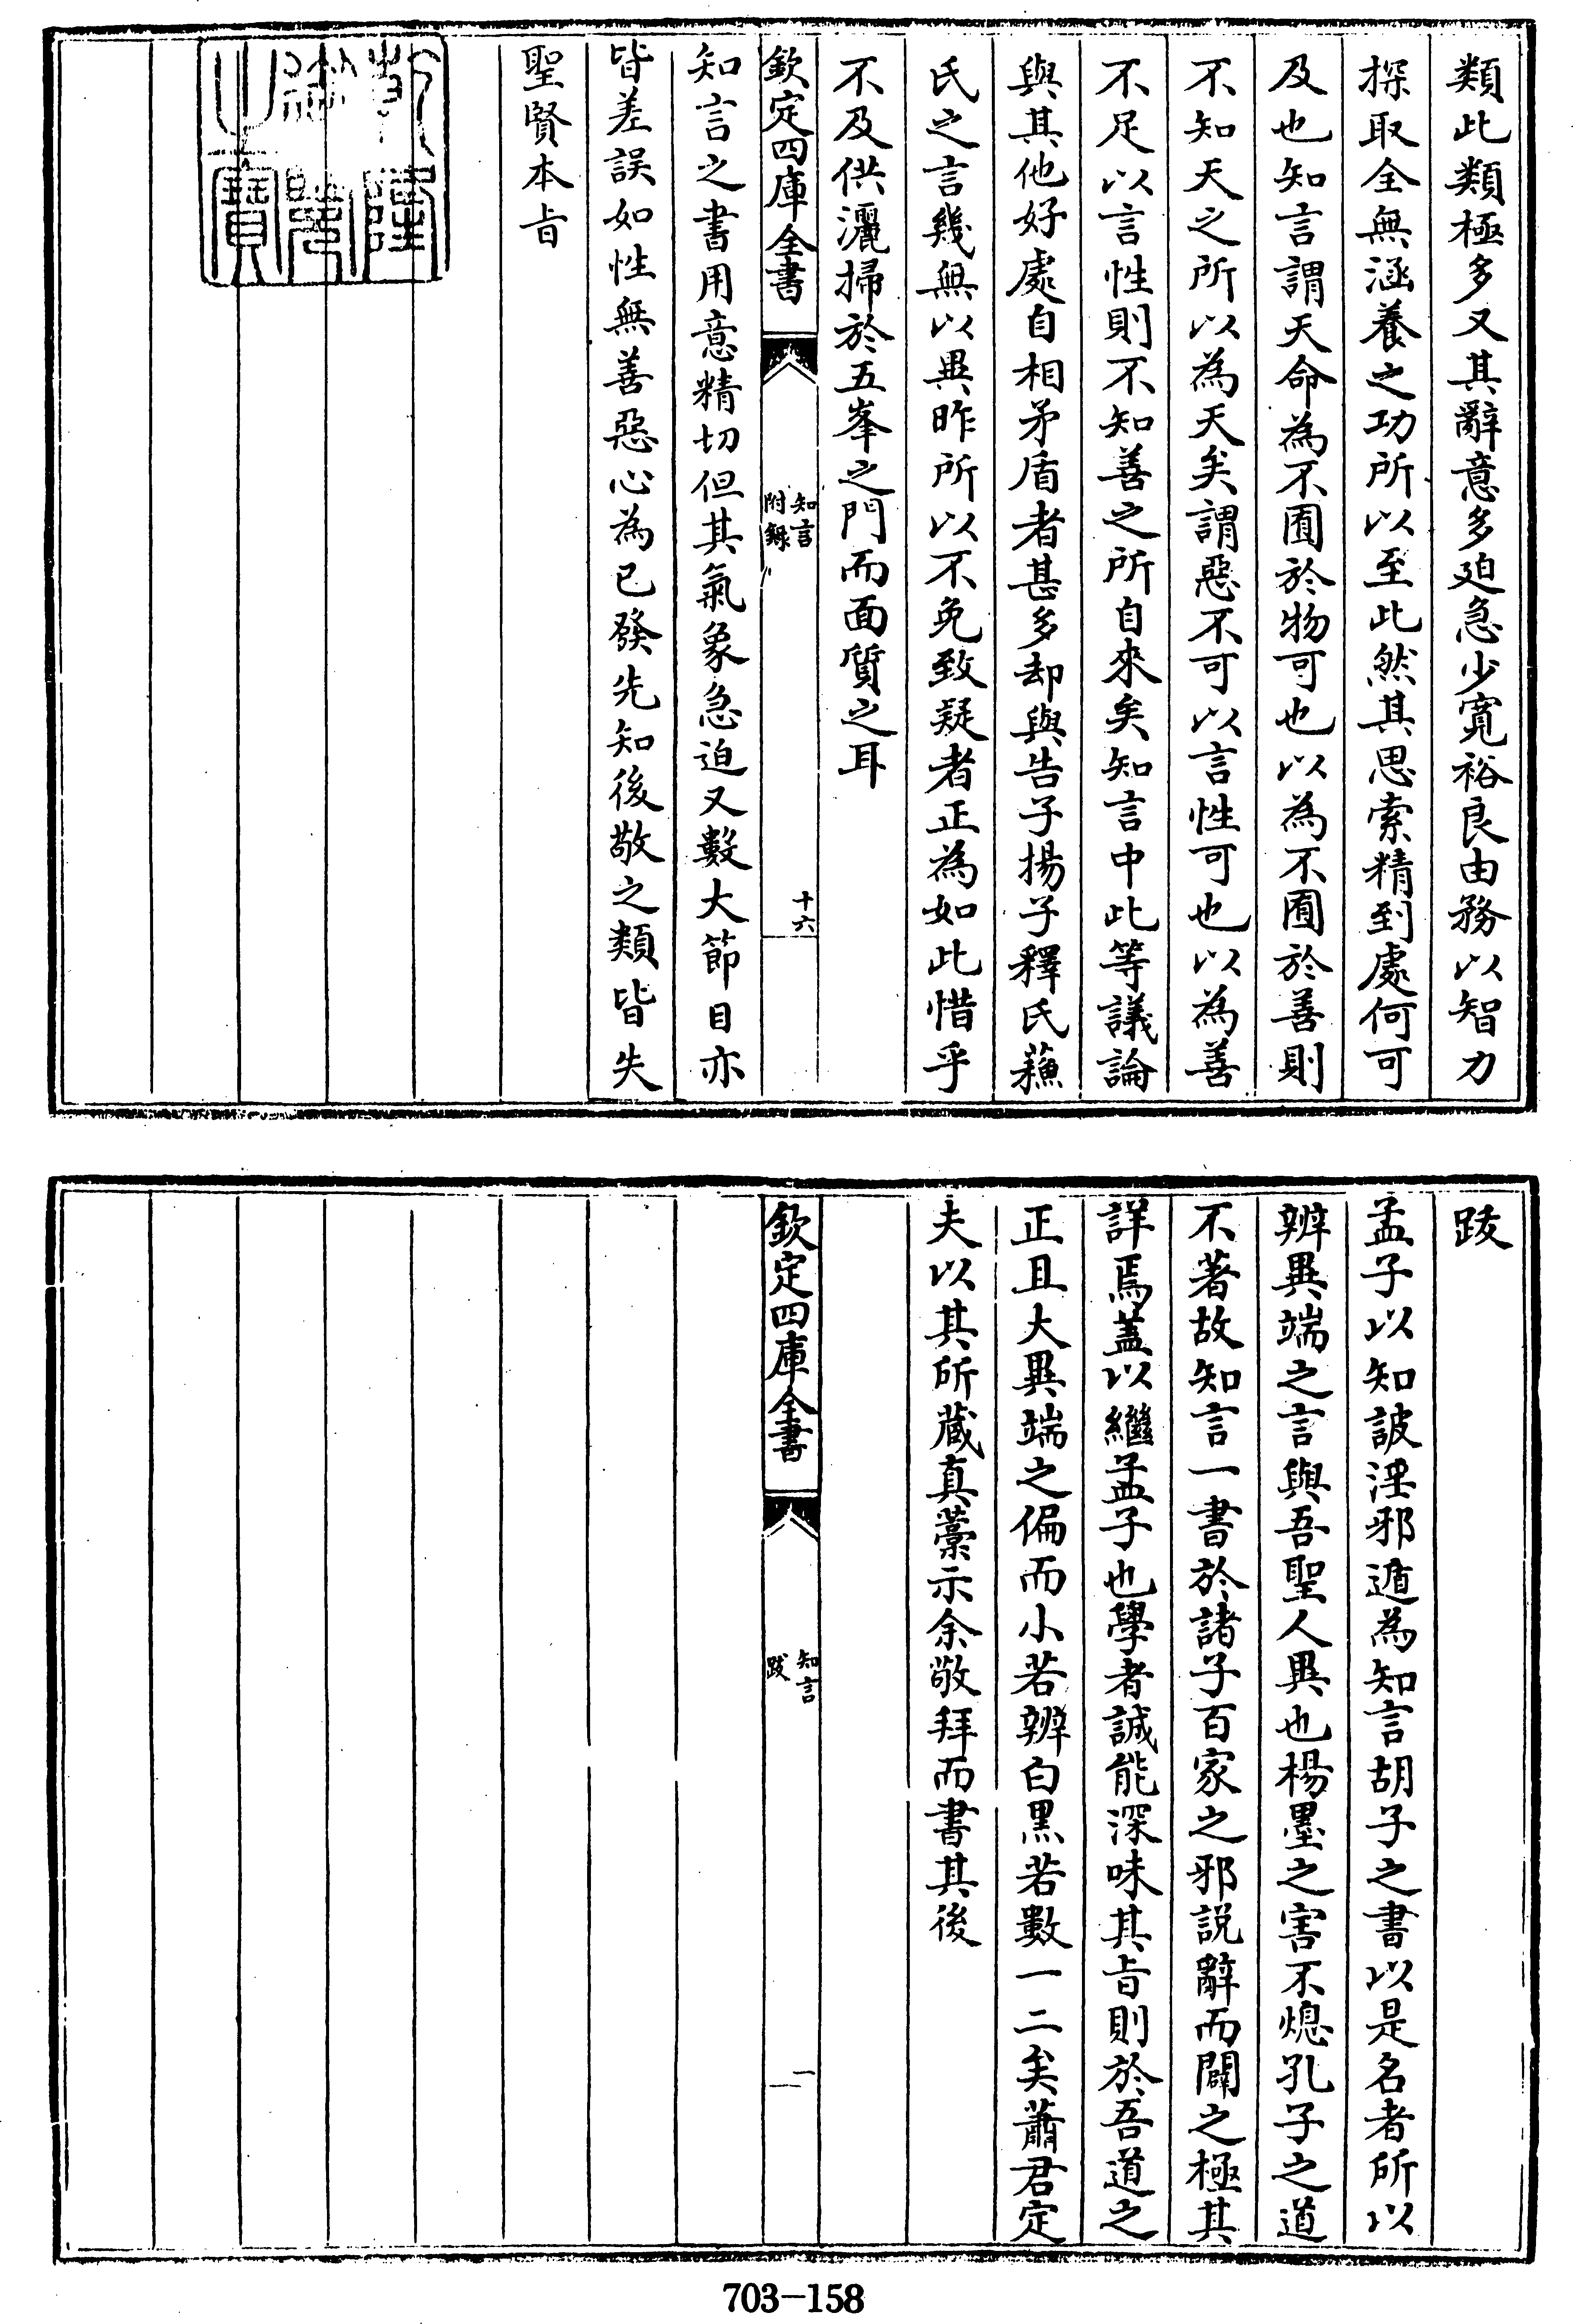 類此類極多又其辭意多迫急少寛裕良由務以智力
探取全無涵養之功所以至此然其思索精到處何可
及也知言謂天命為不囿於物可也以為不囿於善則
不知天之所以為天矣謂惡不可以言性可也以為善
不足以言性則不知善之所自來矣知言中此等議論
與其他好處自相矛盾者甚多却與告子揚子釋氏蘇
氏之言幾無以異昨所以不免致疑者正為如此惜乎
不及供灑掃於五峯之門而面質之耳
欽定四庫全書
知言
附錄
十六
知言之書用意精切但其氣象急迫又數大節目亦
皆差誤如性無善惡心為已發先知後敬之類皆失
聖賢本旨
乾隆御覽之寶
跋
孟子以知詖淫邪遁為知言胡子之書以是名者所以
辨異端之言與吾聖人異也楊墨之害不熄孔子之道
不著故知言一書於諸子百家之邪說辭而闢之極其
詳焉蓋以繼孟子也學者誠能深味其旨則於吾道之
正且大異端之偏而小若辨白黑若數一二矣蕭君定
夫以其所藏真藁示余敬拜而書其後
欽定四庫全書
知言
跋
一
703-158